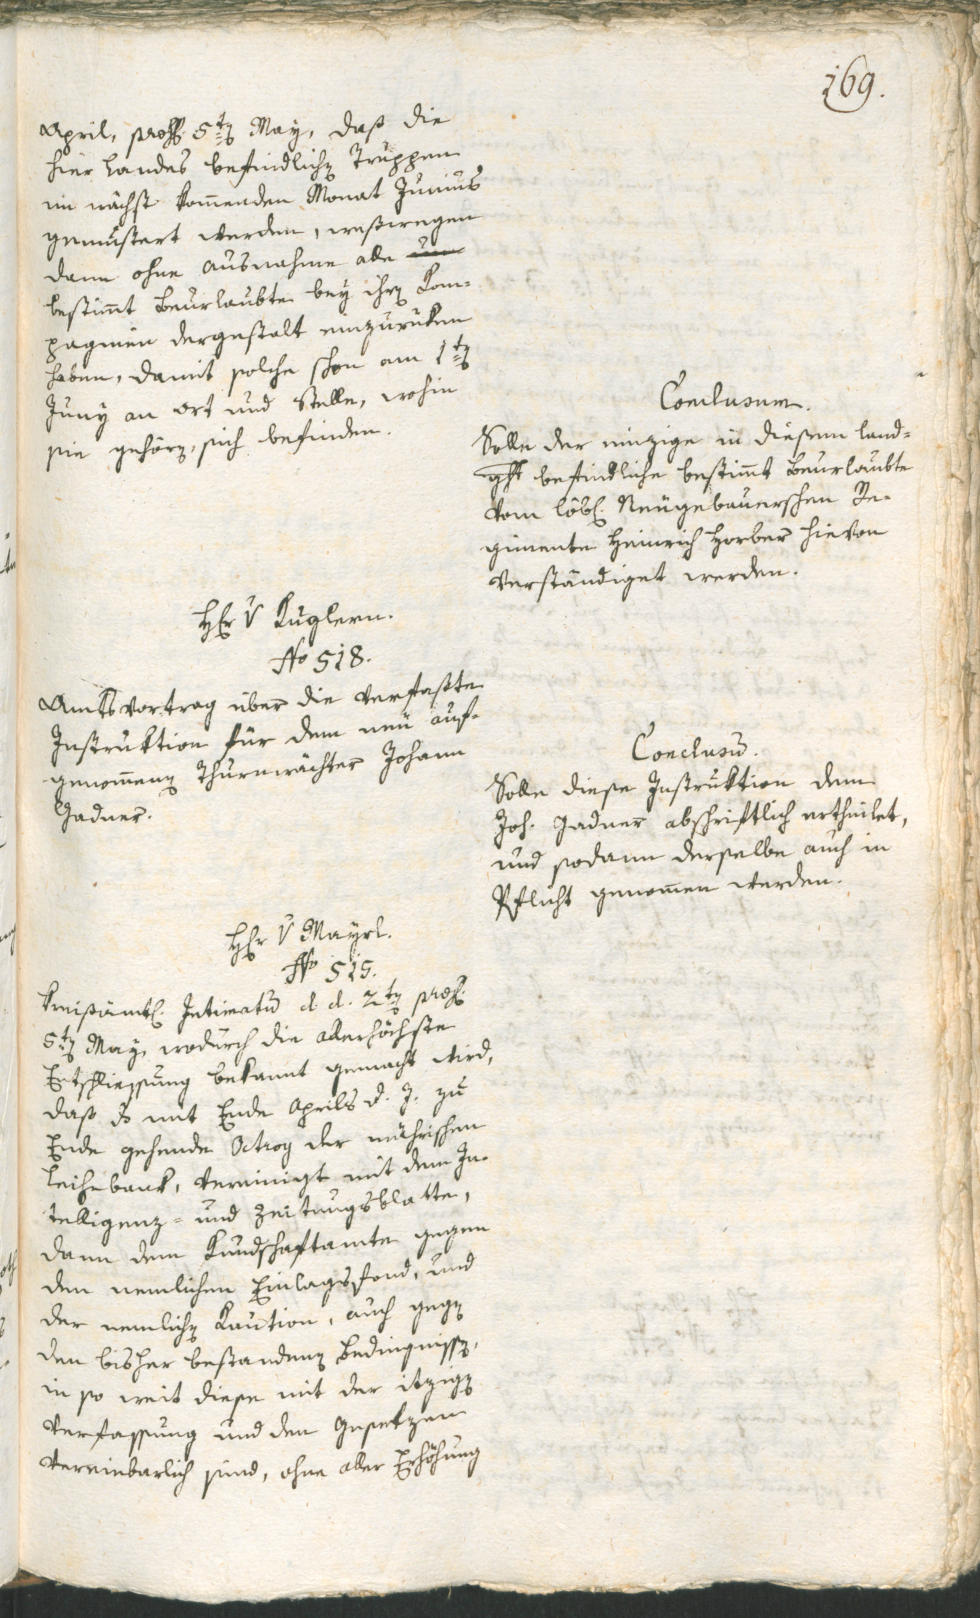 169.
April, praes. 5ten May, daß die
hier Landes befindlichen Truppen
im nächst kommenden Monat Junius
gemustert werden, weßwegen
dann ohne Ausnahme alle
bestimmt Beurlaubte bey ihren Kom-
pagnien dergestalt einzurüken
haben, damit solche schon am 1ten
Juny an Ort und Stelle, wohin
sie gehören, sich befinden.
Conclusum.
Solle der einzige in diesem Land-
ght befindliche bestimmt Beurlaubte
vom löbl. Neugebauerschen Re-
gimente Heinrich Horber hievon
verständiget werden.
Hr V Kuglern.
No 518.
Amtsvortrag über die verfaßte
Instruktion für dem neu auf-
genommenen Thurnwächter Johann
Gadner.
Conclusū.
Solle diese Instruktion dem
Joh. Gadner abschriftlich ertheilet,
und sodann derselbe auch in
Pflicht genommen werden.
Hr V Mayrl.
No 519.
Kreisämtl. Intimatū d. d. 2ten praes.
5ten May, wodurch die allerhöchste
Entschliessung bekannt gemacht wird,
daß die mit Ende Aprils d. J. zu
Ende gehende Octroy der mährischen
Leihebank, vereinigt mit dem In-
telligenz- und Zeitungsblatte,
dann dem Kundschaftamte gegen
den nemlichen Einlagsfond, und
der nemlichen Kaution, auch gegen
den bisher bestandenen Bedingnissen,
in so weit diese mit der itzigen
Verfassung und den Gesetzen
vereinbarlich sind, ohne aller Erhöhung